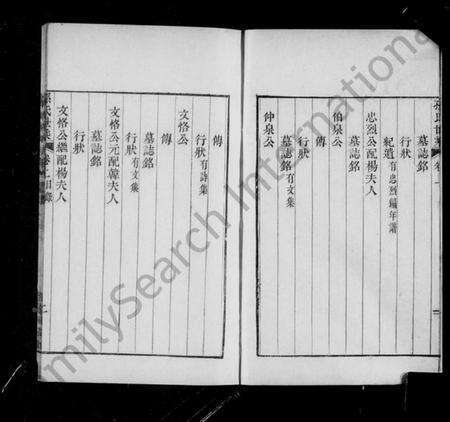 墓誌銘
行狀
紀遺有忠烈編年譜
忠烈公配楊夫人
墓誌銘
傳
伯泉公
行狀
墓誌銘有文集
仲泉公
傳
行狀有詩集
文恪公
傳
墓誌銘
行狀有文集
文恪公元配韓夫人
墓誌銘
行狀
文恪公繼配楊夫人
孫氏世乘 卷一目錄
FamilySearch International